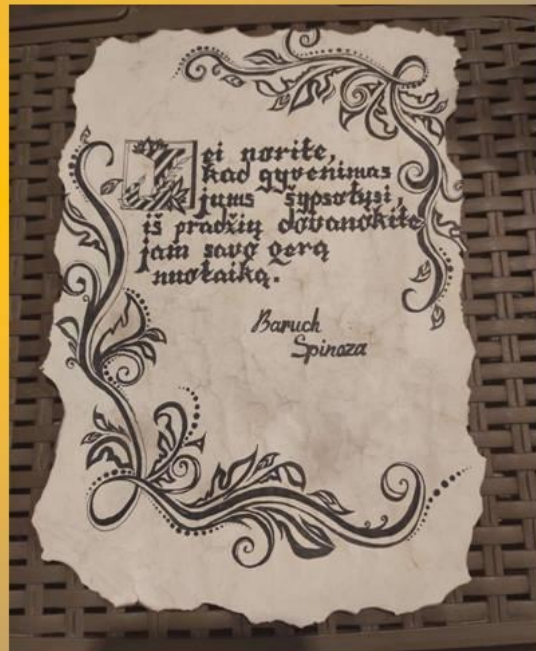 Jei norite,
kad gyvenimas
jums šypsotųsi,
iš pradžių dovanokite
jam savo gerą
nuotaiką.
Baruch
Spinoza